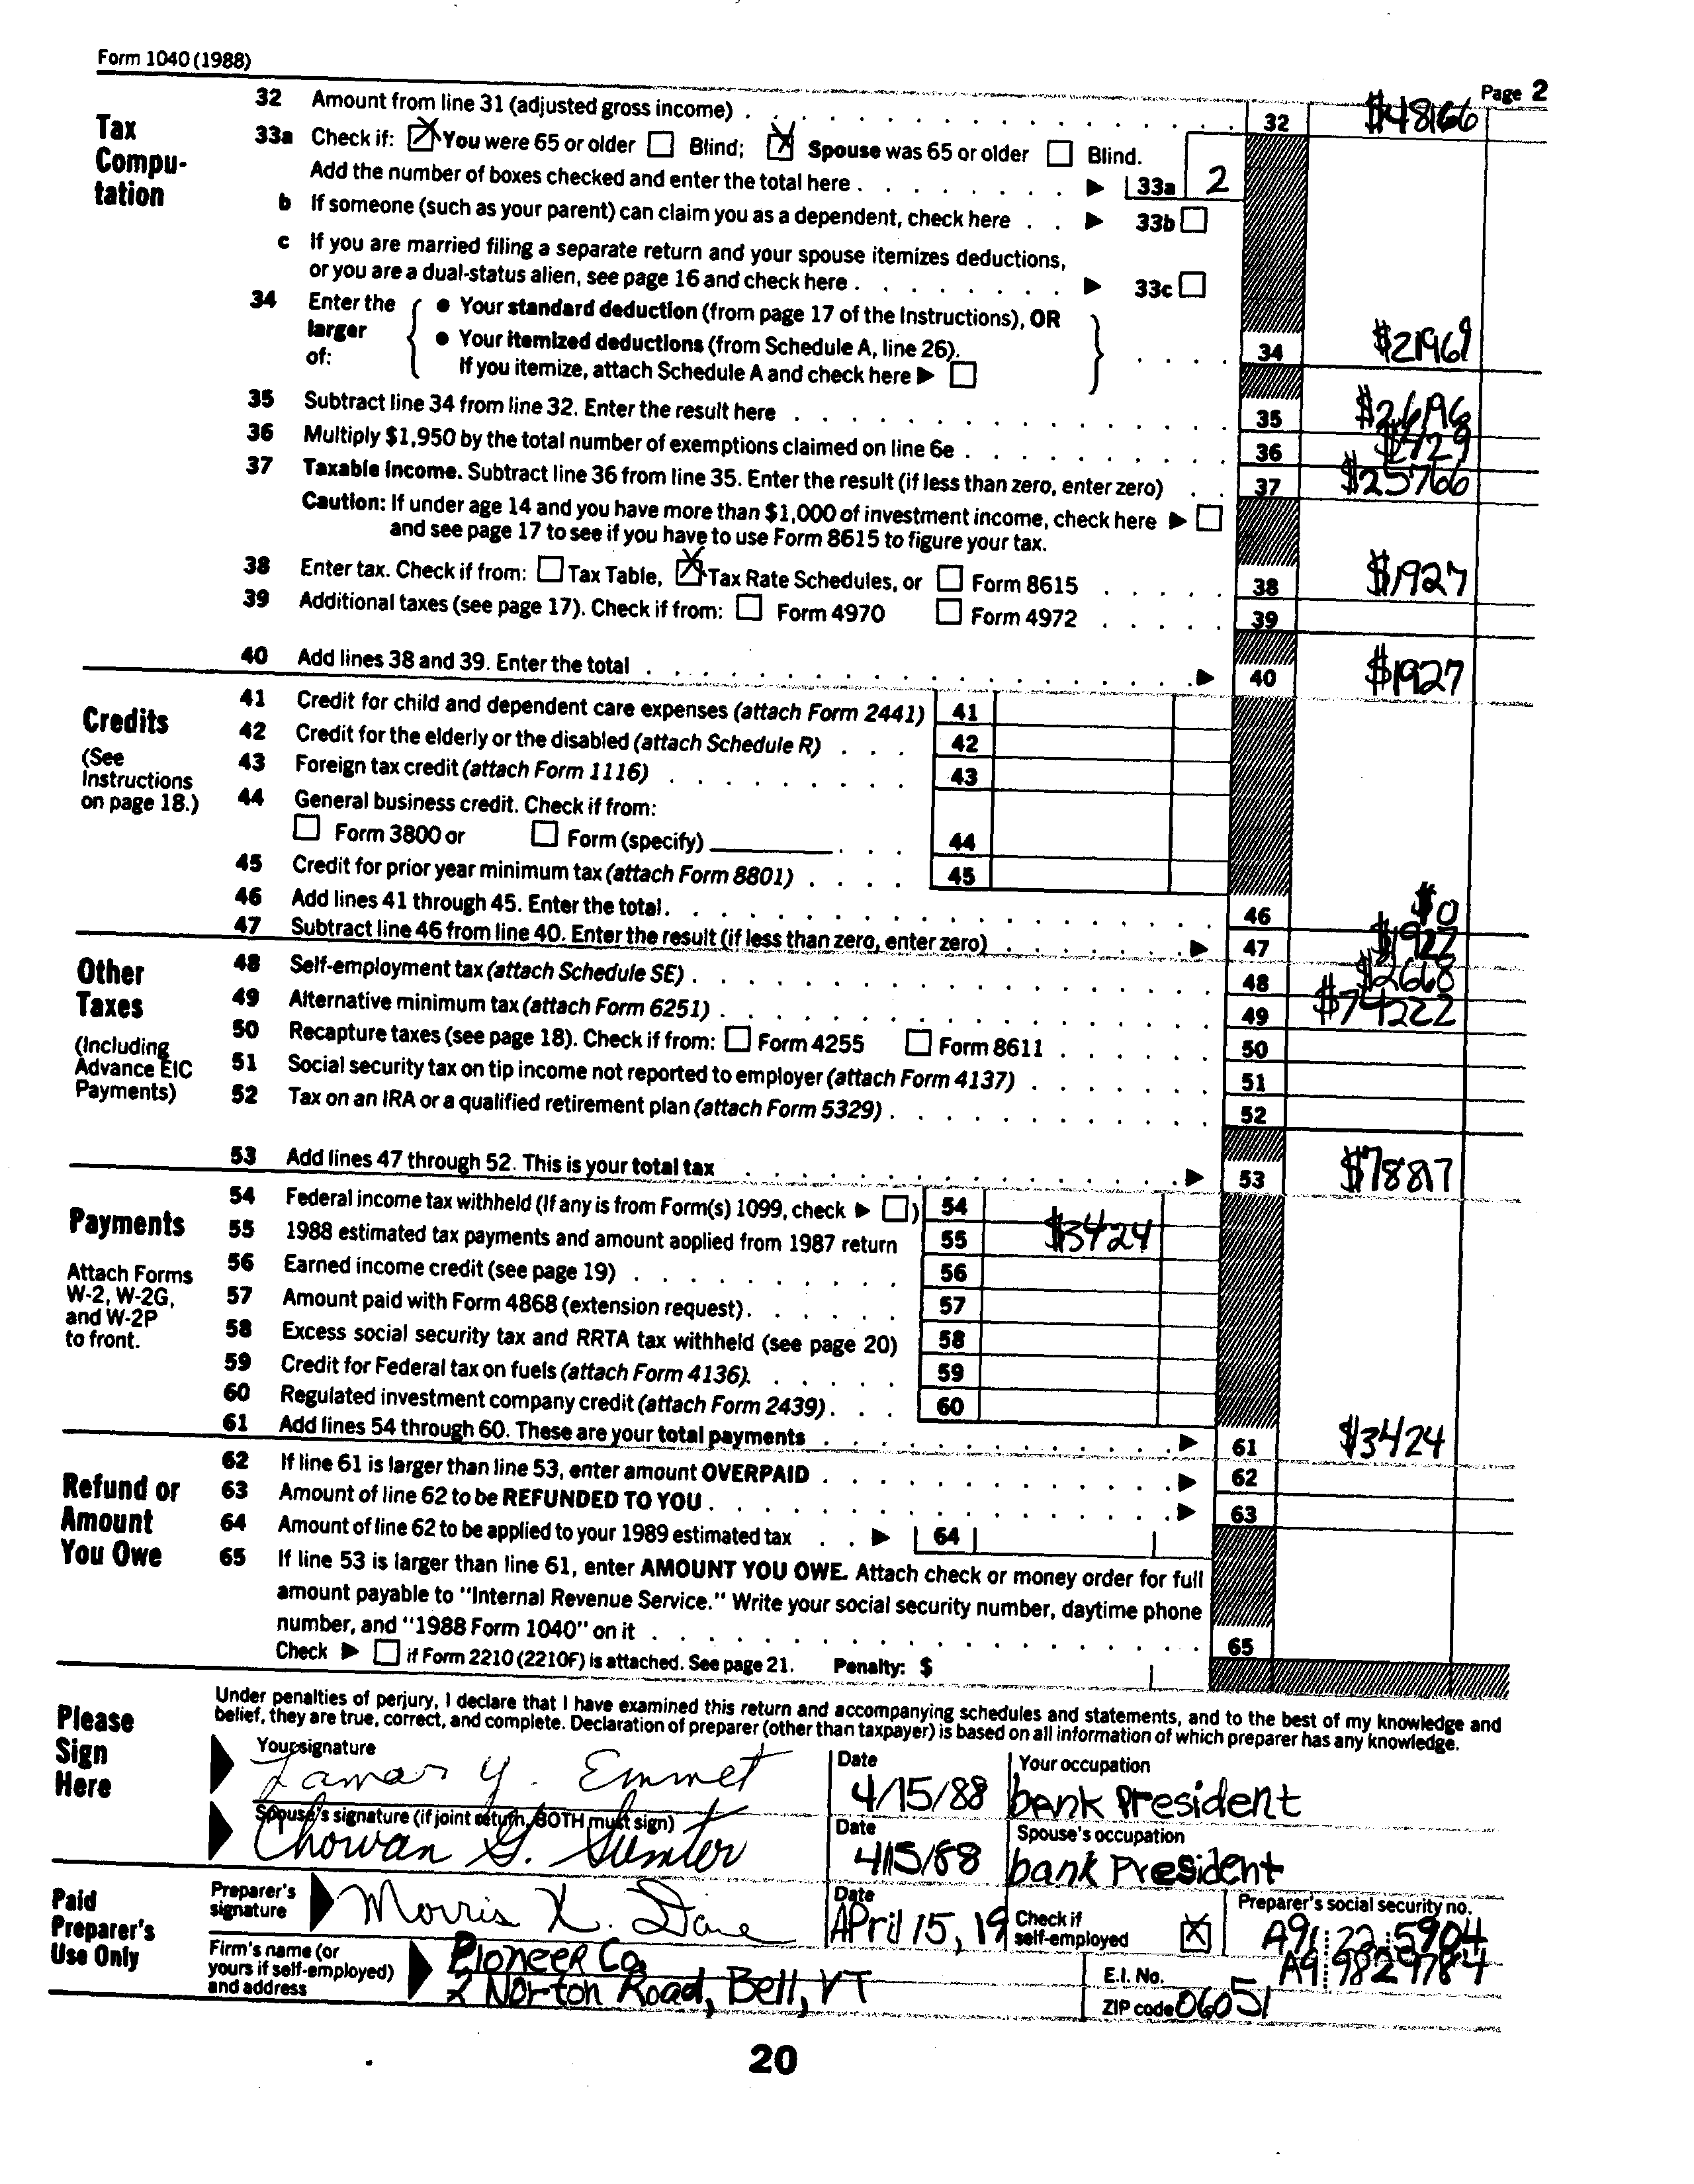 Form 1040 (1988)
Page 2
Tax Compu-tation
32 Amount from line 31 (adjusted gross income) 32 $48166
33a Check if: You were 65 or older Blind; Spouse was 65 or older Blind.
Add the number of boxes checked and enter the total here 33a 2
b If someone (such as your parent) can claim you as a dependent, check here 33b
c If you are married filing a separate return and your spouse itemizes deductions,
or you are a dual-status alien, see page 16 and check here 33c
34 Enter the larger of:
• Your standard deduction (from page 17 of the Instructions), OR
• Your itemized deductions (from Schedule A, line 26).
If you itemize, attach Schedule A and check here 34 $21969
35 Subtract line 34 from line 32. Enter the result here 35 $26196
36 Multiply $1,950 by the total number of exemptions claimed on line 6e 36 $429
37 Taxable income. Subtract line 36 from line 35. Enter the result (if less than zero, enter zero) 37 $25766
Caution: If under age 14 and you have more than $1,000 of investment income, check here
and see page 17 to see if you have to use Form 8615 to figure your tax.
38 Enter tax. Check if from: Tax Table, Tax Rate Schedules, or Form 8615 38 $1927
39 Additional taxes (see page 17). Check if from: Form 4970 Form 4972 39
40 Add lines 38 and 39. Enter the total 40 $1927
Credits
(See Instructions on page 18.)
41 Credit for child and dependent care expenses (attach Form 2441) 41
42 Credit for the elderly or the disabled (attach Schedule R) 42
43 Foreign tax credit (attach Form 1116) 43
44 General business credit. Check if from:
Form 3800 or Form (specify) 44
45 Credit for prior year minimum tax (attach Form 8801) 45
46 Add lines 41 through 45. Enter the total. 46 $0
47 Subtract line 46 from line 40. Enter the result (if less than zero, enter zero) 47 $1927
Other Taxes
(Including Advance EIC Payments)
48 Self-employment tax (attach Schedule SE) 48 $2668
49 Alternative minimum tax (attach Form 6251) 49 $74222
50 Recapture taxes (see page 18). Check if from: Form 4255 Form 8611 50
51 Social security tax on tip income not reported to employer (attach Form 4137) 51
52 Tax on an IRA or a qualified retirement plan (attach Form 5329) 52
53 Add lines 47 through 52. This is your total tax 53 $78817
Payments
Attach Forms W-2, W-2G, and W-2P to front.
54 Federal income tax withheld (If any is from Form(s) 1099, check ) 54
55 1988 estimated tax payments and amount applied from 1987 return 55 $3424
56 Earned income credit (see page 19) 56
57 Amount paid with Form 4868 (extension request) 57
58 Excess social security tax and RRTA tax withheld (see page 20) 58
59 Credit for Federal tax on fuels (attach Form 4136). 59
60 Regulated investment company credit (attach Form 2439) 60
61 Add lines 54 through 60. These are your total payments 61 $3424
Refund or Amount You Owe
62 If line 61 is larger than line 53, enter amount OVERPAID 62
63 Amount of line 62 to be REFUNDED TO YOU 63
64 Amount of line 62 to be applied to your 1989 estimated tax 64
65 If line 53 is larger than line 61, enter AMOUNT YOU OWE. Attach check or money order for full
amount payable to "Internal Revenue Service." Write your social security number, daytime phone
number, and "1988 Form 1040" on it 65
Check if Form 2210 (2210F) is attached. See page 21. Penalty: $
Please Sign Here
Under penalties of perjury, I declare that I have examined this return and accompanying schedules and statements, and to the best of my knowledge and
belief, they are true, correct, and complete. Declaration of preparer (other than taxpayer) is based on all information of which preparer has any knowledge.
Your signature Date Your occupation
Lamar Y. Emmet 4/15/88 bank President
Spouse's signature (if joint return, BOTH must sign) Date Spouse's occupation
Chowan G. Sumter 4/15/88 bank President
Paid Preparer's Use Only
Preparer's signature Morris X. Dane Date April 15, 19 Check if self-employed Preparer's social security no. A91 22 5904
Firm's name (or yours if self-employed) and address Pioneer Co. E.I. No. A9 9829784
2 Norton Road, Bell, VT ZIP code 06051
20